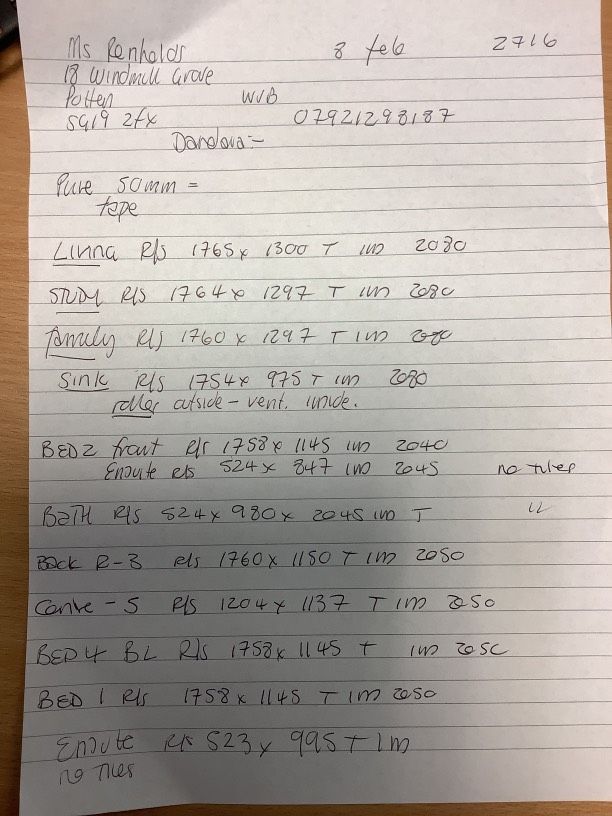 Ms Renholds 8 feb 2716
18 Windmill Grove
Potten WVB
SG19 2fx 07921298187
Pure 50mm =
tape
Linna R/S 1765 x 1300 T IM 2080
STUDY R/S 1764 x 1297 T IM 2080
family R/S 1760 x 1297 T IM 2080
Sink R/S 1754 x 975 T IM 2080
roller outside - vent. inside.
BED 2 front R/S 1758 x 1145 IM 2040
Ensuite R/S 524 x 847 IM 2045 no tiles
BATH R/S 524 x 980 x 2045 IM T
Back R-3 R/S 1760 x 1150 T IM 2050
Centre - 5 R/S 1204 x 1137 T IM 2050
BED 4 BL R/S 1758 x 1145 T IM 2050
BED 1 R/S 1758 x 1145 T IM 2050
Ensuite R/S 523 x 995 T IM
no Tiles